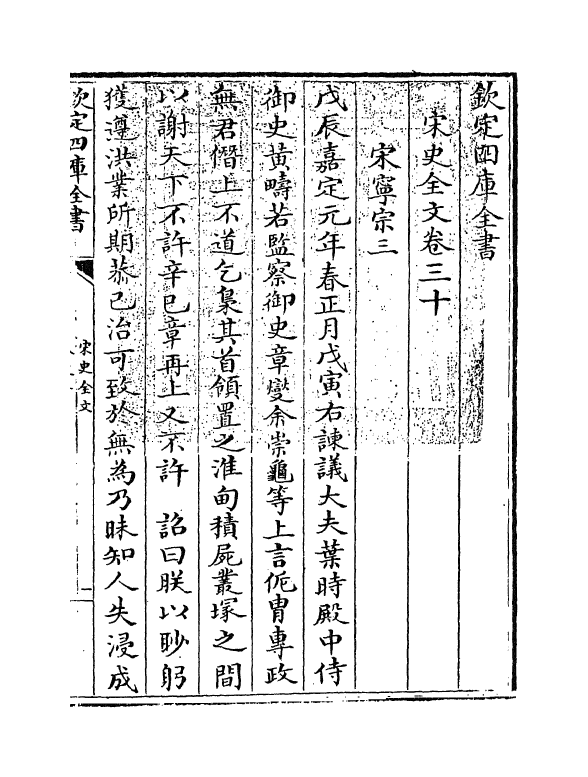 欽定四庫全書
宋史全文卷三十
宋寧宗三
戊辰嘉定元年春正月戊寅右諫議大夫葉時殿中侍
御史黃疇若監察御史章燮余崇龜等上言侂胄專政
無君僭上不道乞梟其首領置之淮甸積屍叢塚之間
以謝天下不許辛巳章再上又不許 詔曰朕以眇躬
獲遵洪業所期恭己治可致於無為乃昧知人失浸成
欽定四庫全書
宋史全文
一